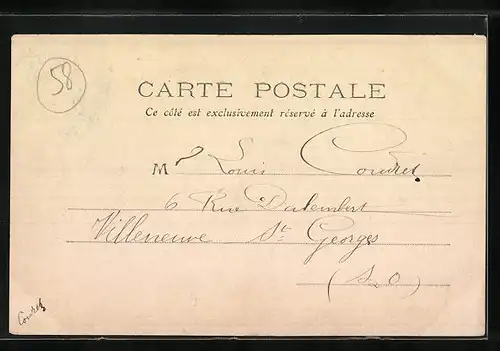 58
CARTE POSTALE
Ce côté est exclusivement réservé à l'adresse
M r Louis Coudret
6 Rue Dalembert
Villeneuve St Georges
(S&O)
Coudret